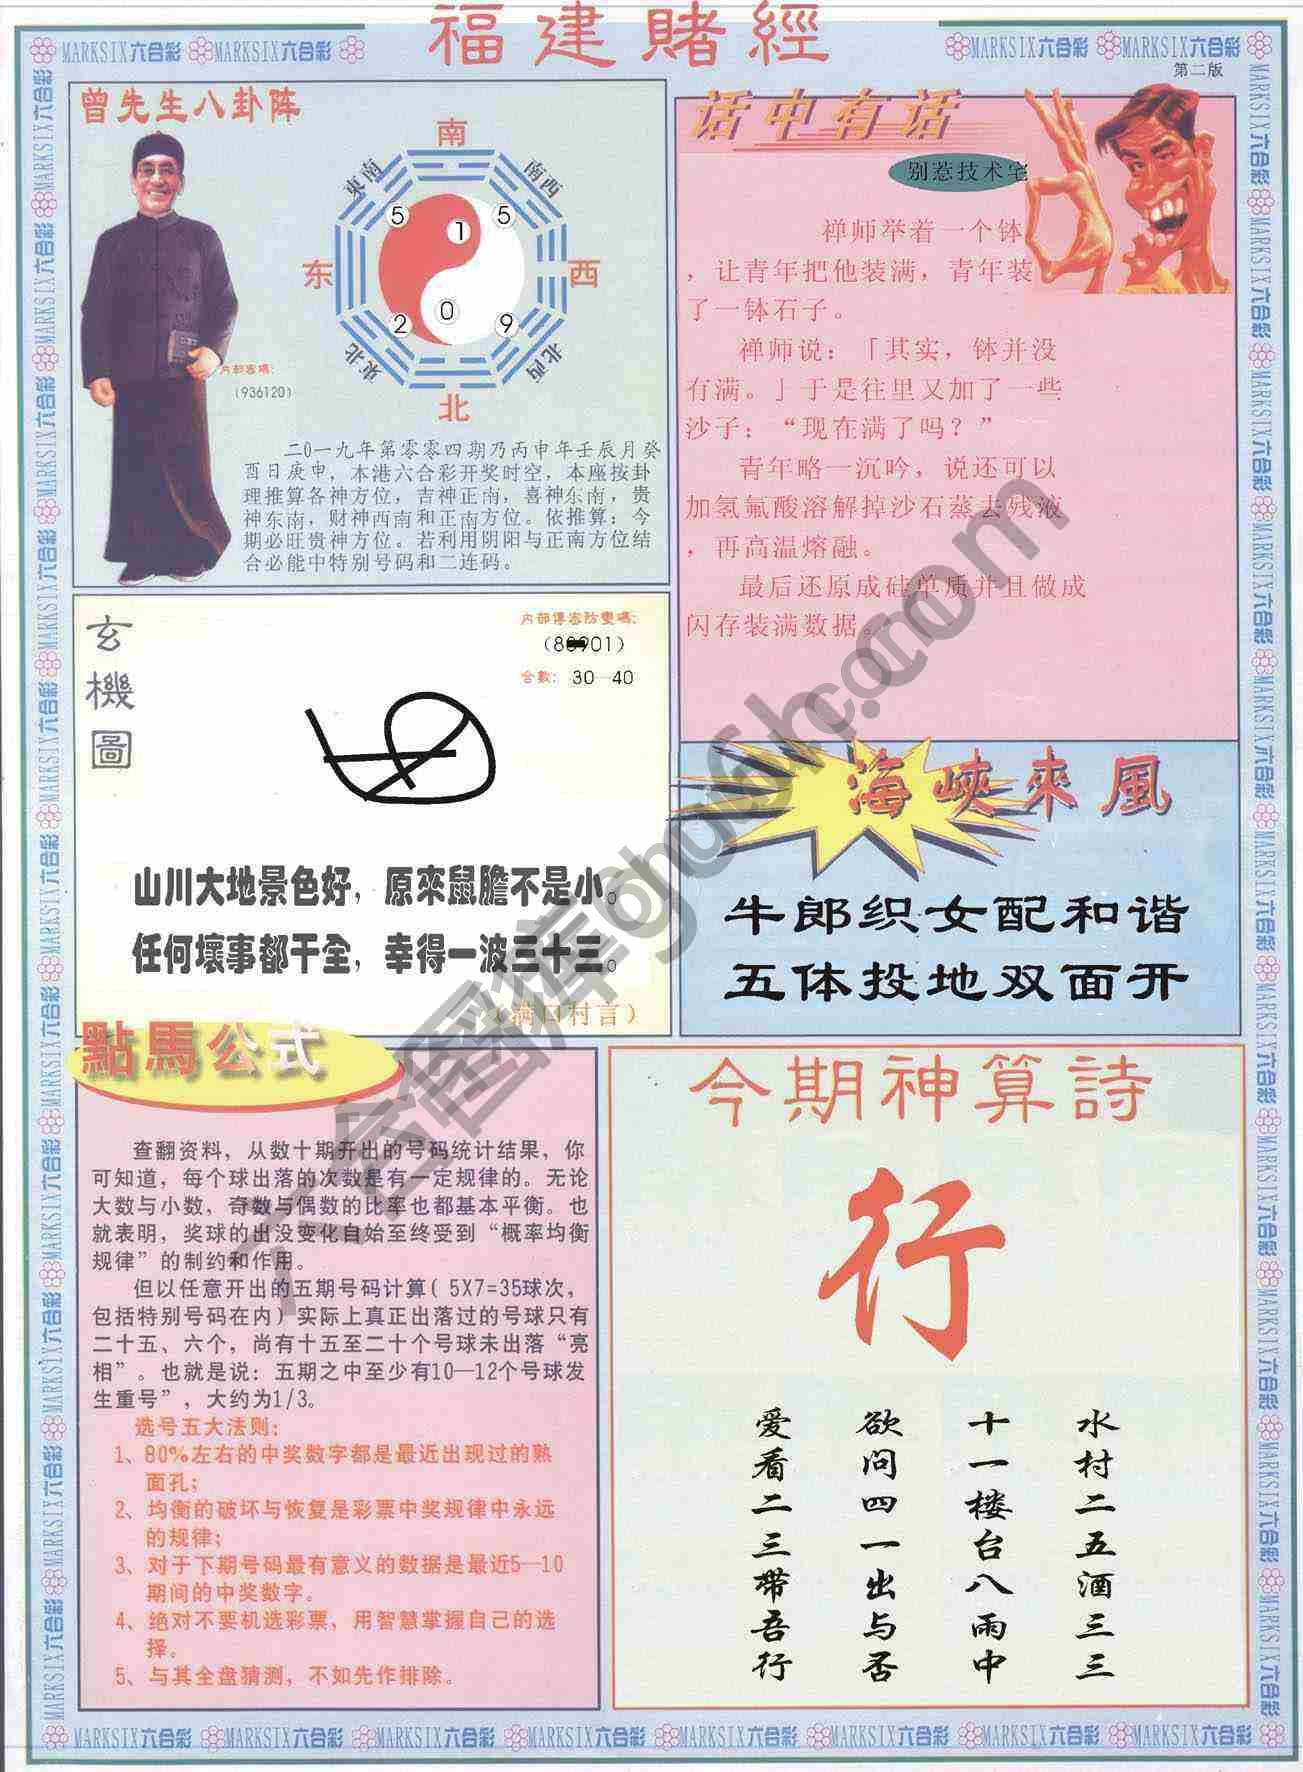 福建賭經
MARKSIX六合彩 MARKSIX六合彩
MARKSIX六合彩 MARKSIX六合彩
第二版
曾先生八卦阵
南
東南
南西
5
1
5
东
西
2
0
9
東北
北西
北
内部密碼:
(936120)
二0一九年第零零四期乃丙申年壬辰月癸
酉日庚申，本港六合彩开奖时空，本座按卦
理推算各神方位，吉神正南，喜神东南，贵
神东南，财神西南和正南方位。依推算：今
期必旺贵神方位。若利用阴阳与正南方位结
合必能中特别号码和二连码。
话中有话
别惹技术宅
禅师举着一个钵
，让青年把他装满，青年装
了一钵石子。
禅师说：「其实，钵并没
有满。」于是往里又加了一些
沙子：“现在满了吗？”
青年略一沉吟，说还可以
加氢氟酸溶解掉沙石蒸去残液
，再高温熔融。
最后还原成硅单质并且做成
闪存装满数据。
玄機圖
内部傳密防變碼:
901)
合數: 30—40
山川大地景色好，原來鼠膽不是小。
任何壞事都干全，幸得一波三十三。
(满口村言)
海峽來風
牛郎织女配和谐
五体投地双面开
點馬公式
查翻资料，从数十期开出的号码统计结果，你
可知道，每个球出落的次数是有一定规律的。无论
大数与小数，奇数与偶数的比率也都基本平衡。也
就表明，奖球的出没变化自始至终受到“概率均衡
规律”的制约和作用。
但以任意开出的五期号码计算( 5X7=35球次，
包括特别号码在内)实际上真正出落过的号球只有
二十五、六个，尚有十五至二十个号球未出落“亮
相”。也就是说：五期之中至少有10—12个号球发
生重号”，大约为1/3。
选号五大法则:
1、80%左右的中奖数字都是最近出现过的熟
面孔;
2、均衡的破坏与恢复是彩票中奖规律中永远
的规律;
3、对于下期号码最有意义的数据是最近5—10
期间的中奖数字。
4、绝对不要机选彩票，用智慧掌握自己的选
择。
5、与其全盘猜测，不如先作排除。
今期神算詩
行
水村二五酒三三
十一楼台八雨中
欲问四一出与否
爱看二三带吾行
MARKSIX六合彩 MARKSIX六合彩 MARKSIX六合彩 MARKSIX六合彩 MARKSIX六合彩 MARKSIX六合彩 MARKSIX六合彩 MARKSIX六合彩